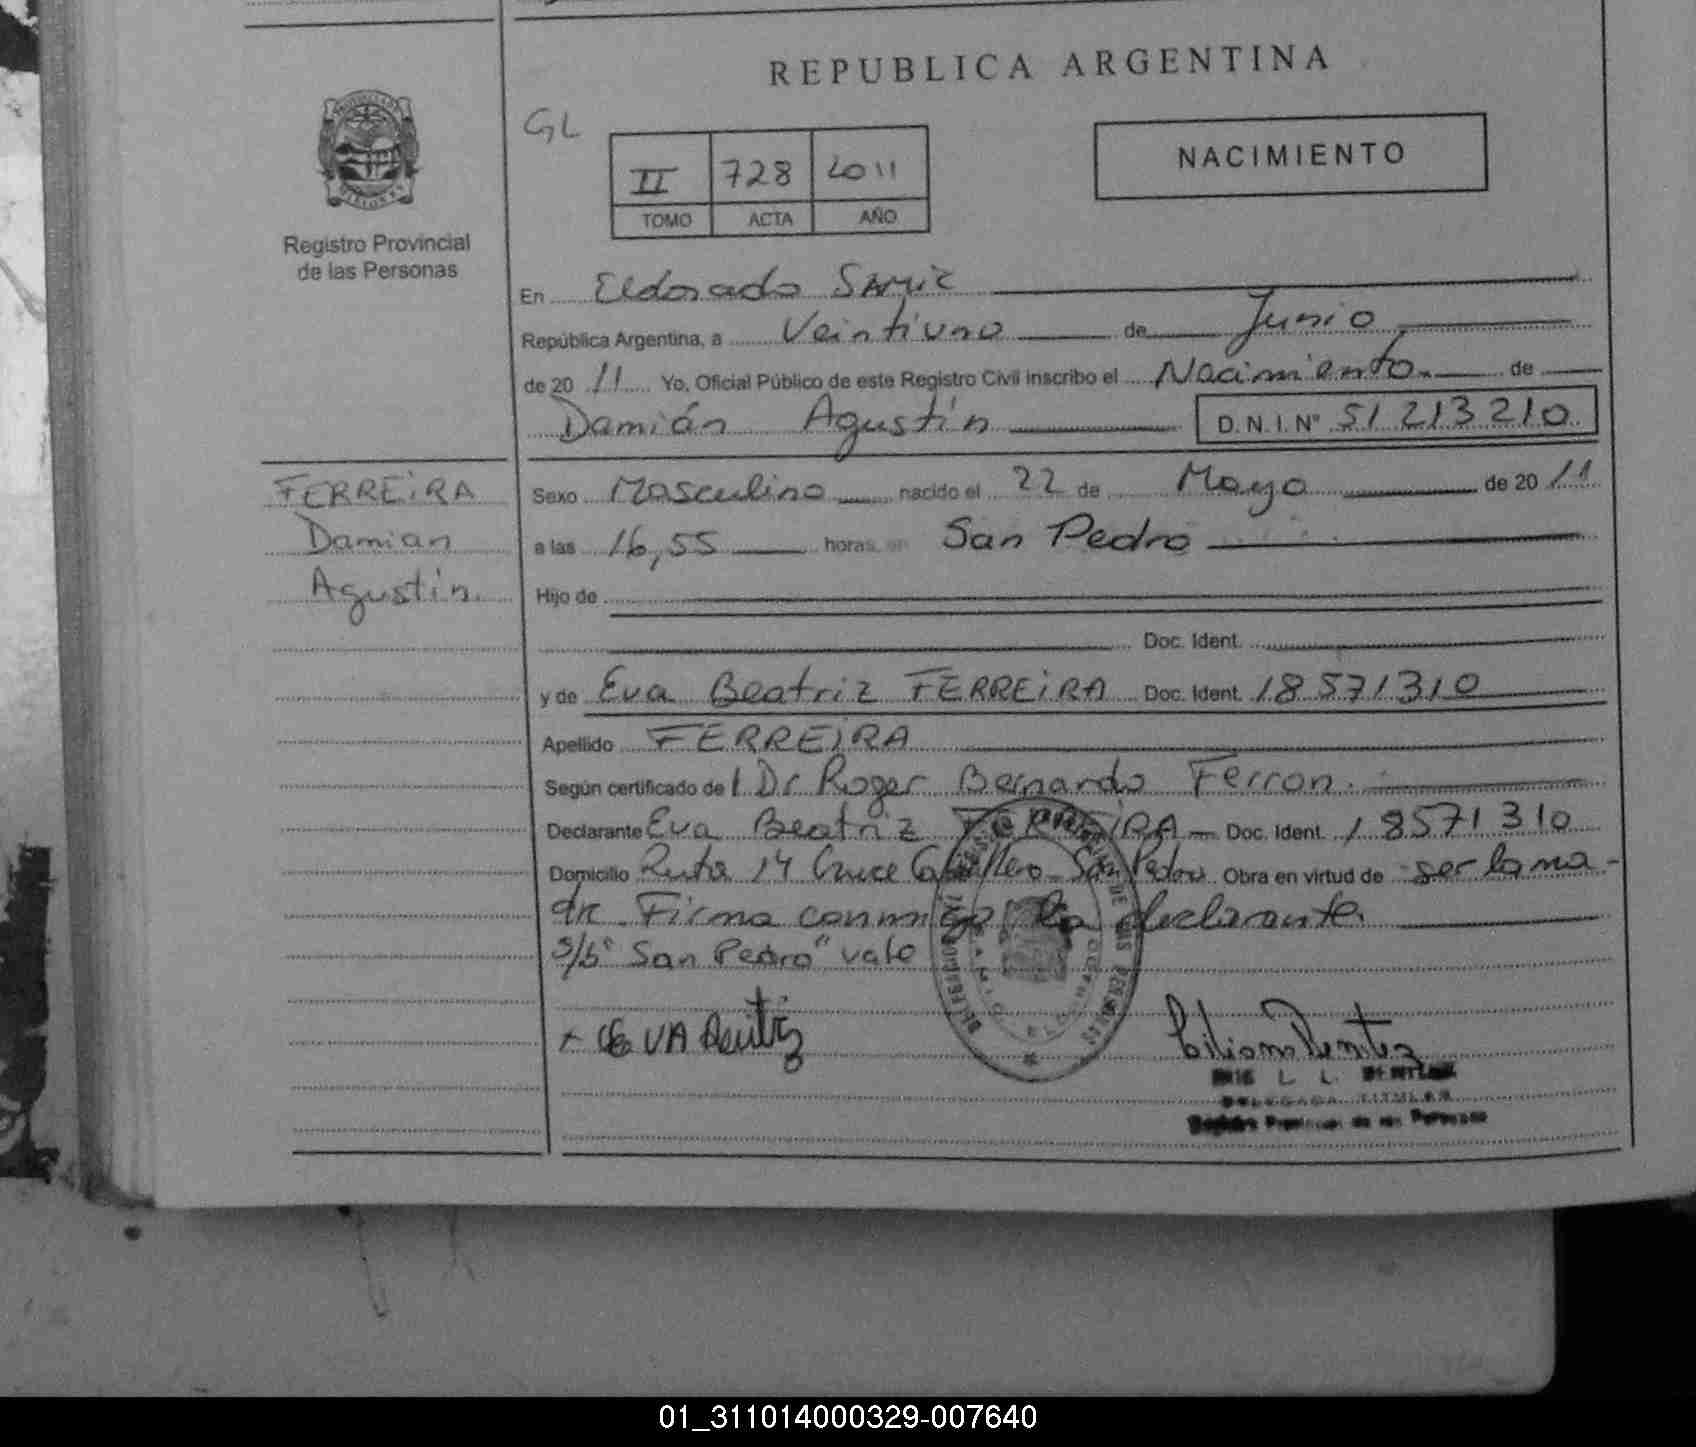 REPUBLICA ARGENTINA
GL
II 728 2011
TOMO ACTA AÑO
NACIMIENTO
Registro Provincial
de las Personas
En Eldorado SAMIC
República Argentina, a Veintiuno de Junio
de 20 11 Yo, Oficial Público de este Registro Civil inscribo el Nacimiento. de
Damián Agustín D.N.I.Nº 51 213 210
FERREIRA
Damian
Agustín.
Sexo Masculino nacido el 22 de Mayo de 20 11
a las 16,55 horas, en San Pedro
Hijo de
Doc. Ident.
y de Eva Beatriz FERREIRA Doc. Ident. 18571310
Apellido FERREIRA
Según certificado del Dr Roger Bernardo Ferron.
Declarante Eva Beatriz FERREIRA Doc. Ident. 18571310
Domicilio Ruta 14 Cruce Caballero San Pedro Obra en virtud de ser la ma-
dre Firma conmigo la declarante.
s/b "San Pedro" vale
DELEGADA TITULAR
Registro Provincial de las Personas
01_311014000329-007640